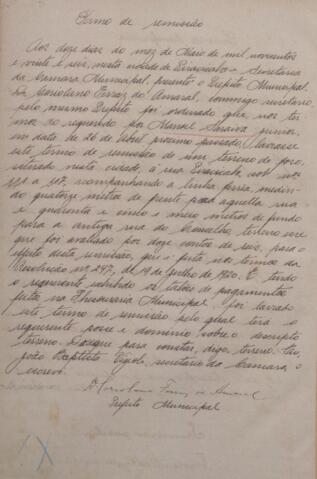 Termo de remissão
Aos doze dias do mez de Maio de mil novecentos
e vinte e seis, nesta cidade de Piracicaba e Secretaria
da Camara Municipal, presente o Prefeito Municipal,
Coriolano Ferraz do Amaral, commigo secretario,
pelo mesmo Prefeito foi ordenado que, nos ter-
mos do requerido por Manoel Saraiva Junior,
em data de 26 de Abril proximo passado, lavrasse
este termo de remissão de um terreno de foro,
situado nesta cidade, á rua
a 117, acompanhando a linha ferrea, medin-
do quatorze metros de frente para aquella rua
e quarenta e cinco e meio metros de fundo
para a antiga rua do Conselho, terreno esse
que foi avaliado por doze contos de reis, para o
effeito desta remissão, que é feita nos termos da
Resolução nº 147, de 19 de Julho de 1920. E tendo
o requerente exhibido os talões de pagamentos
feitos na Thesouraria Municipal, foi lavrado
este termo de remissão pelo qual terá o
requerente posse e dominio sobre o descripto
terreno. Do que para constar, digo, terreno. Eu,
João Baptista Vizioli, secretario da Camara, o
escrevi.
Coriolano Ferraz do Amaral
Prefeito Municipal